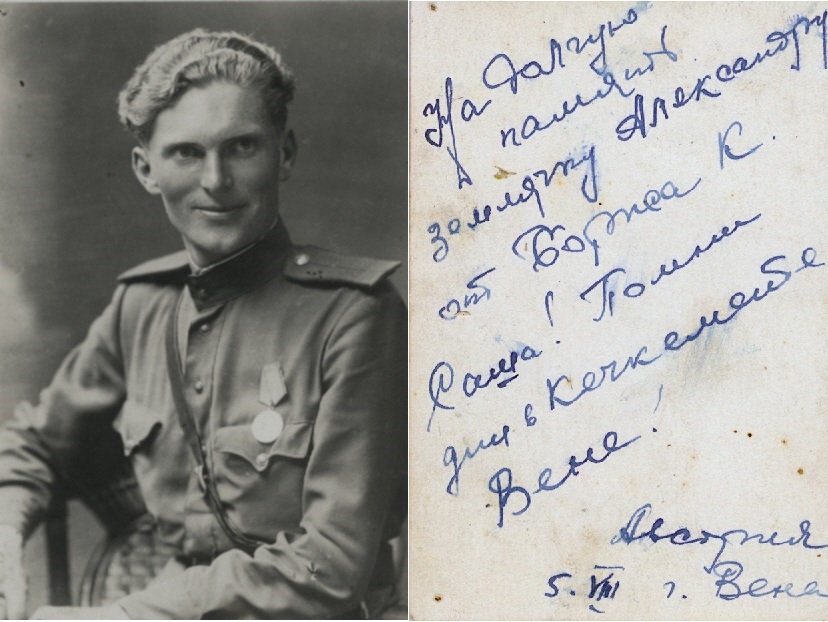 На долгую
память
земляку Александру
от Бориса К.
Саша! Помни
дни в Кечкемете
Вене!
Австрия
5. VIII г. Вена